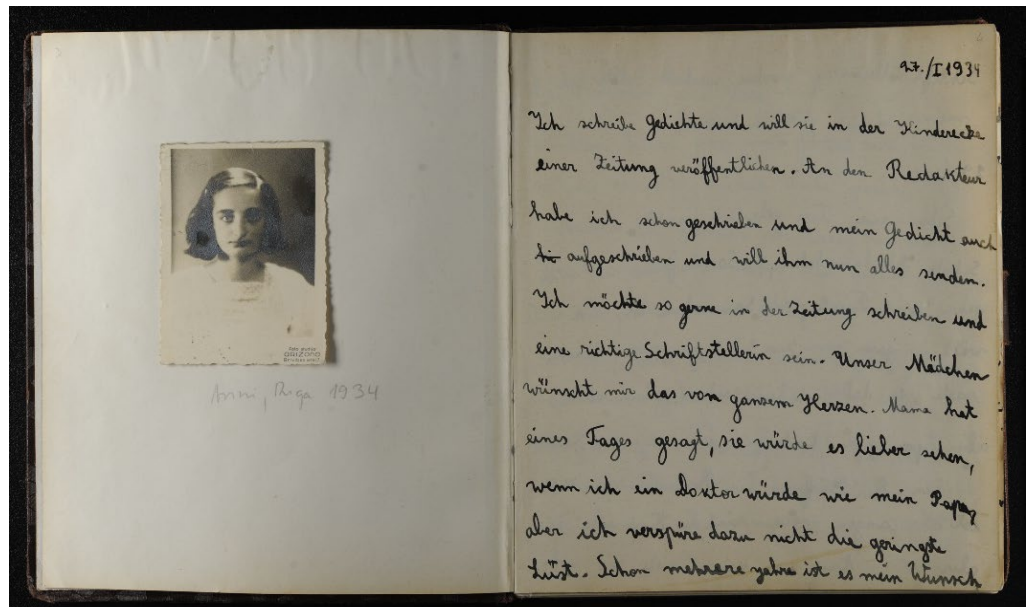 Anni, Riga 1934
ORIZONA
27./I 1934
Ich schreibe Gedichte und will sie in der Kinderecke
einer Zeitung veröffentlichen. An den Redakteur
habe ich schon geschrieben und mein Gedicht auch
hi aufgeschrieben und will ihm nun alles senden.
Ich möchte so gerne in der Zeitung schreiben und
eine richtige Schriftstellerin sein. Unser Mädchen
wünscht mir das von ganzem Herzen. Mama hat
eines Tages gesagt, sie würde es lieber sehen,
wenn ich ein Doktor würde wie mein Papa,
aber ich verspüre dazu nicht die geringste
Lust. Schon mehrere Jahre ist es mein Wunsch